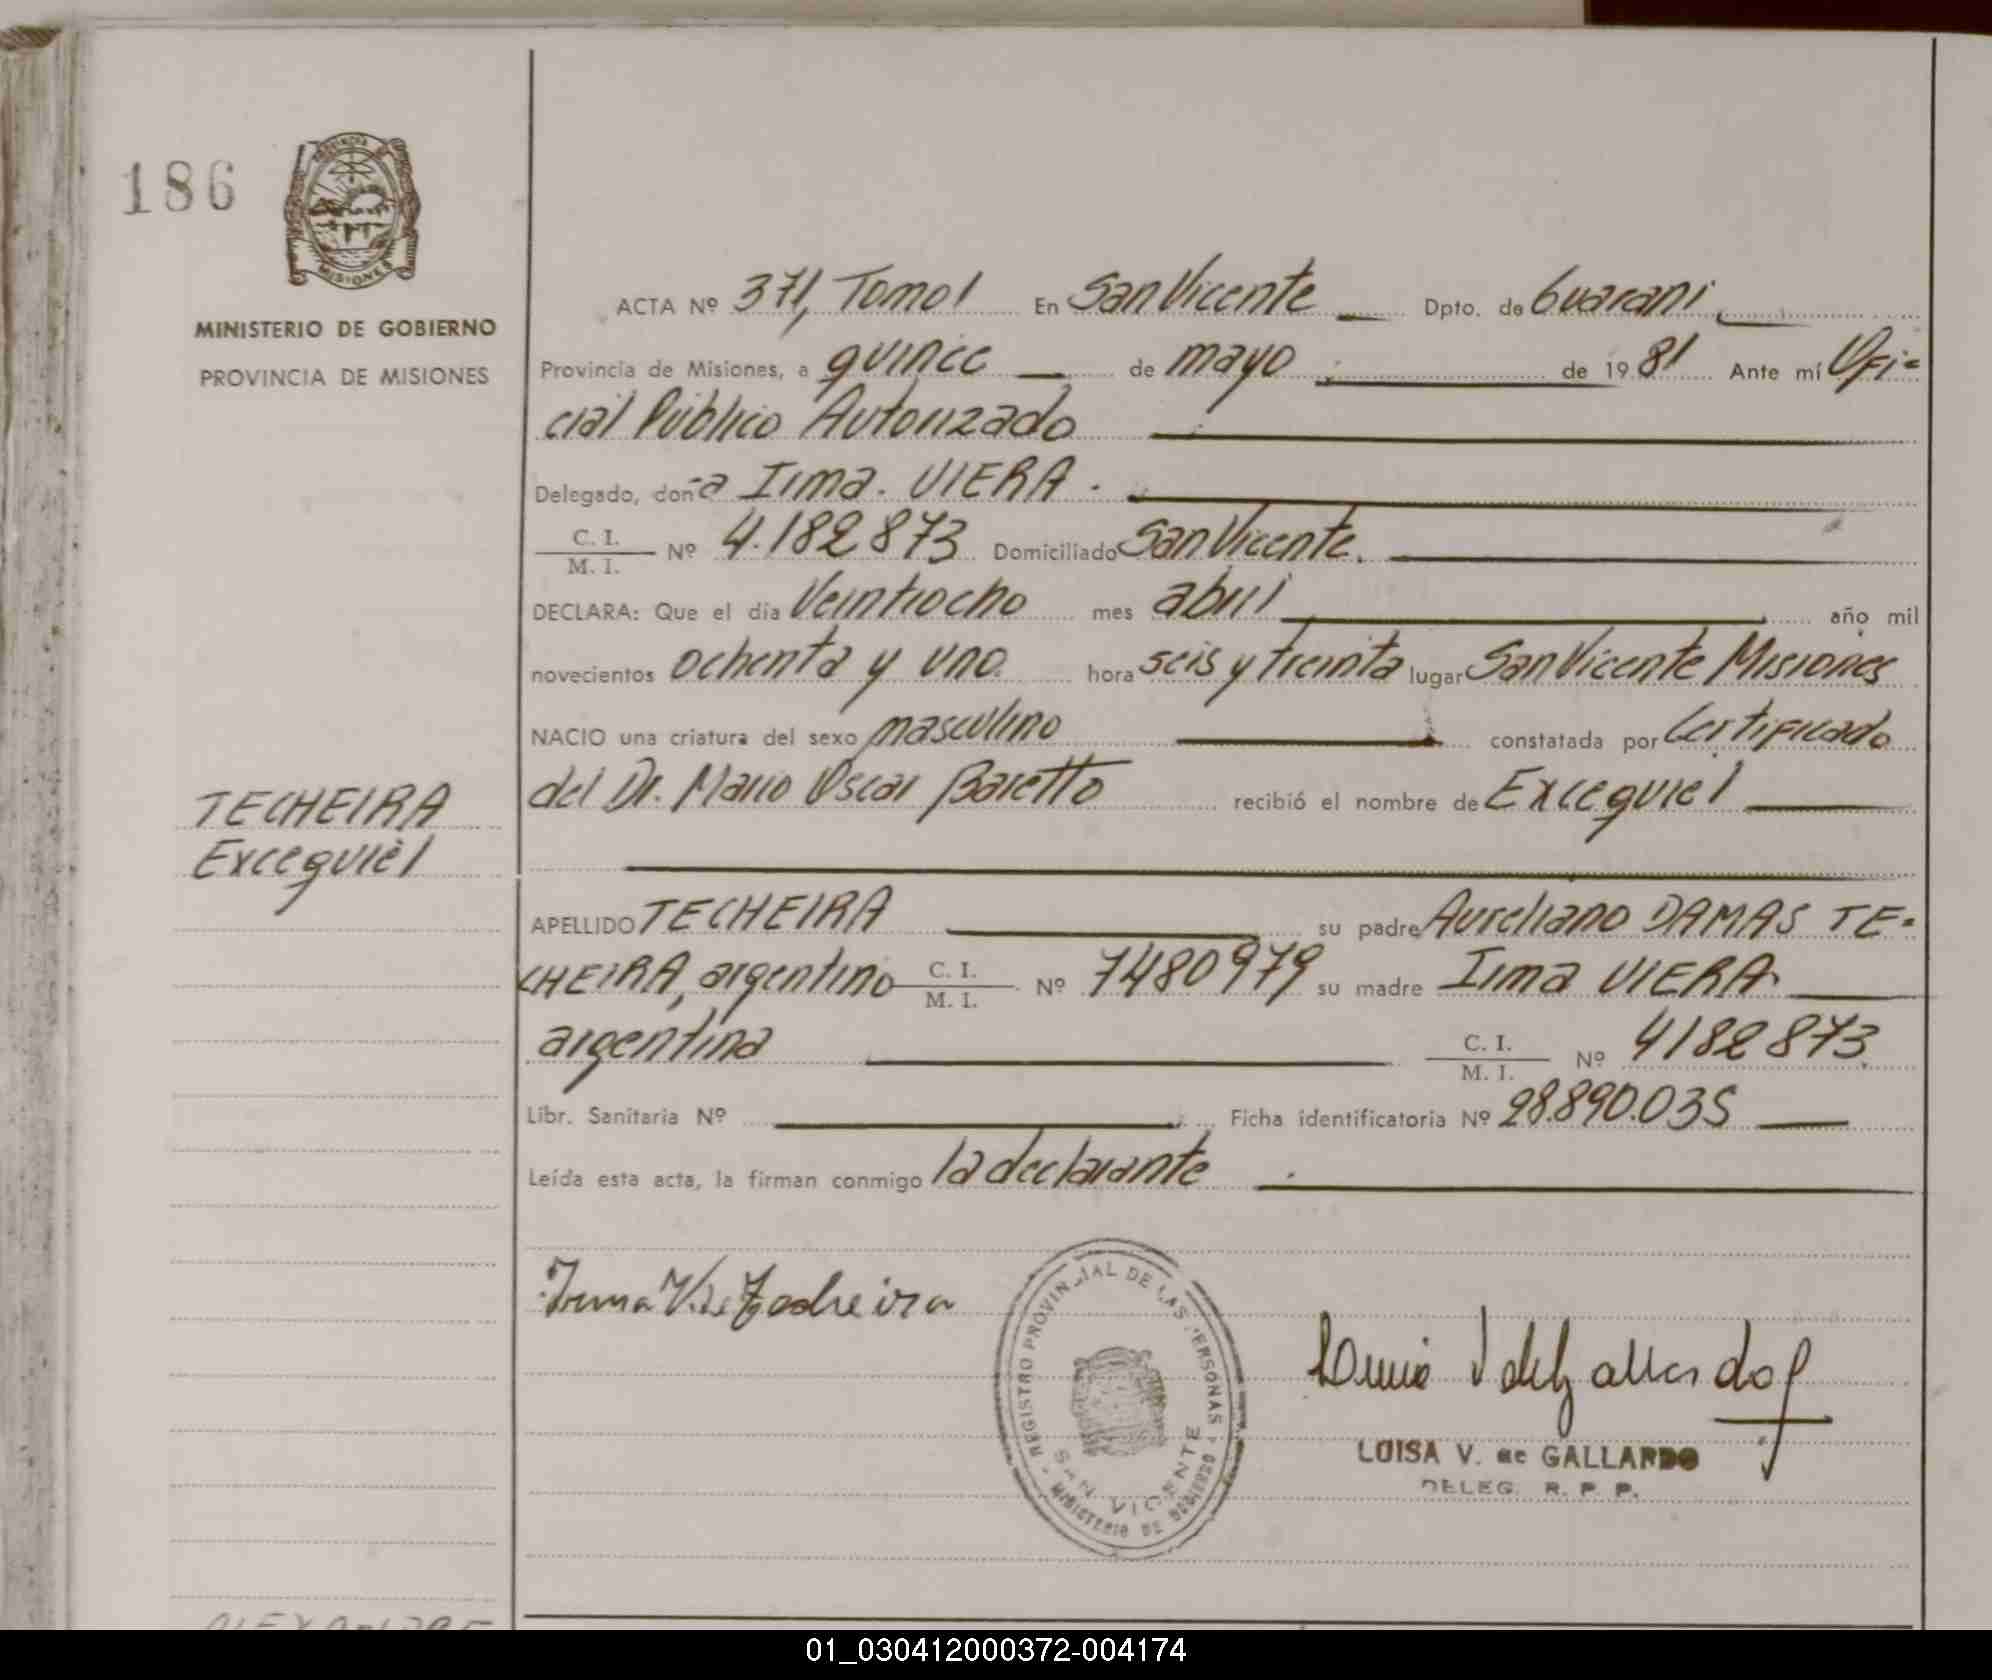 186
MISIONES
MINISTERIO DE GOBIERNO
PROVINCIA DE MISIONES
ACTA Nº 371, Tomo I En San Vicente Dpto. de Guarani
Provincia de Misiones, a quince de mayo de 1981 Ante mí Ofi=
cial Público Autorizado
Delegado, don-a Irma. VIERA.
C. I.
M. I. Nº 4.182873 Domiciliado San Vicente.
DECLARA: Que el día Veintiocho mes abril año mil
novecientos ochenta y uno. hora seis y treinta lugar San Vicente Misiones
NACIO una criatura del sexo masculino constatada por Certificado
del Dr. Mario Oscar Baretto recibió el nombre de Excequiel
TECHEIRA
Excequiel
APELLIDO TECHEIRA su padre Aureliano DAMAS TE=
CHEIRA, argentino C. I.
M. I. Nº 7480979 su madre Irma VIERA
argentina C. I.
M. I. Nº 4182873
Libr. Sanitaria Nº Ficha identificatoria Nº 28.890.035
Leída esta acta, la firman conmigo la declarante
Irma V. de Techeira
REGISTRO PROVINCIAL DE LAS PERSONAS
SAN VICENTE
MINISTERIO DE GOBIERNO
LUISA V. de GALLARDO
DELEG. R. P. P.
01_030412000372-004174